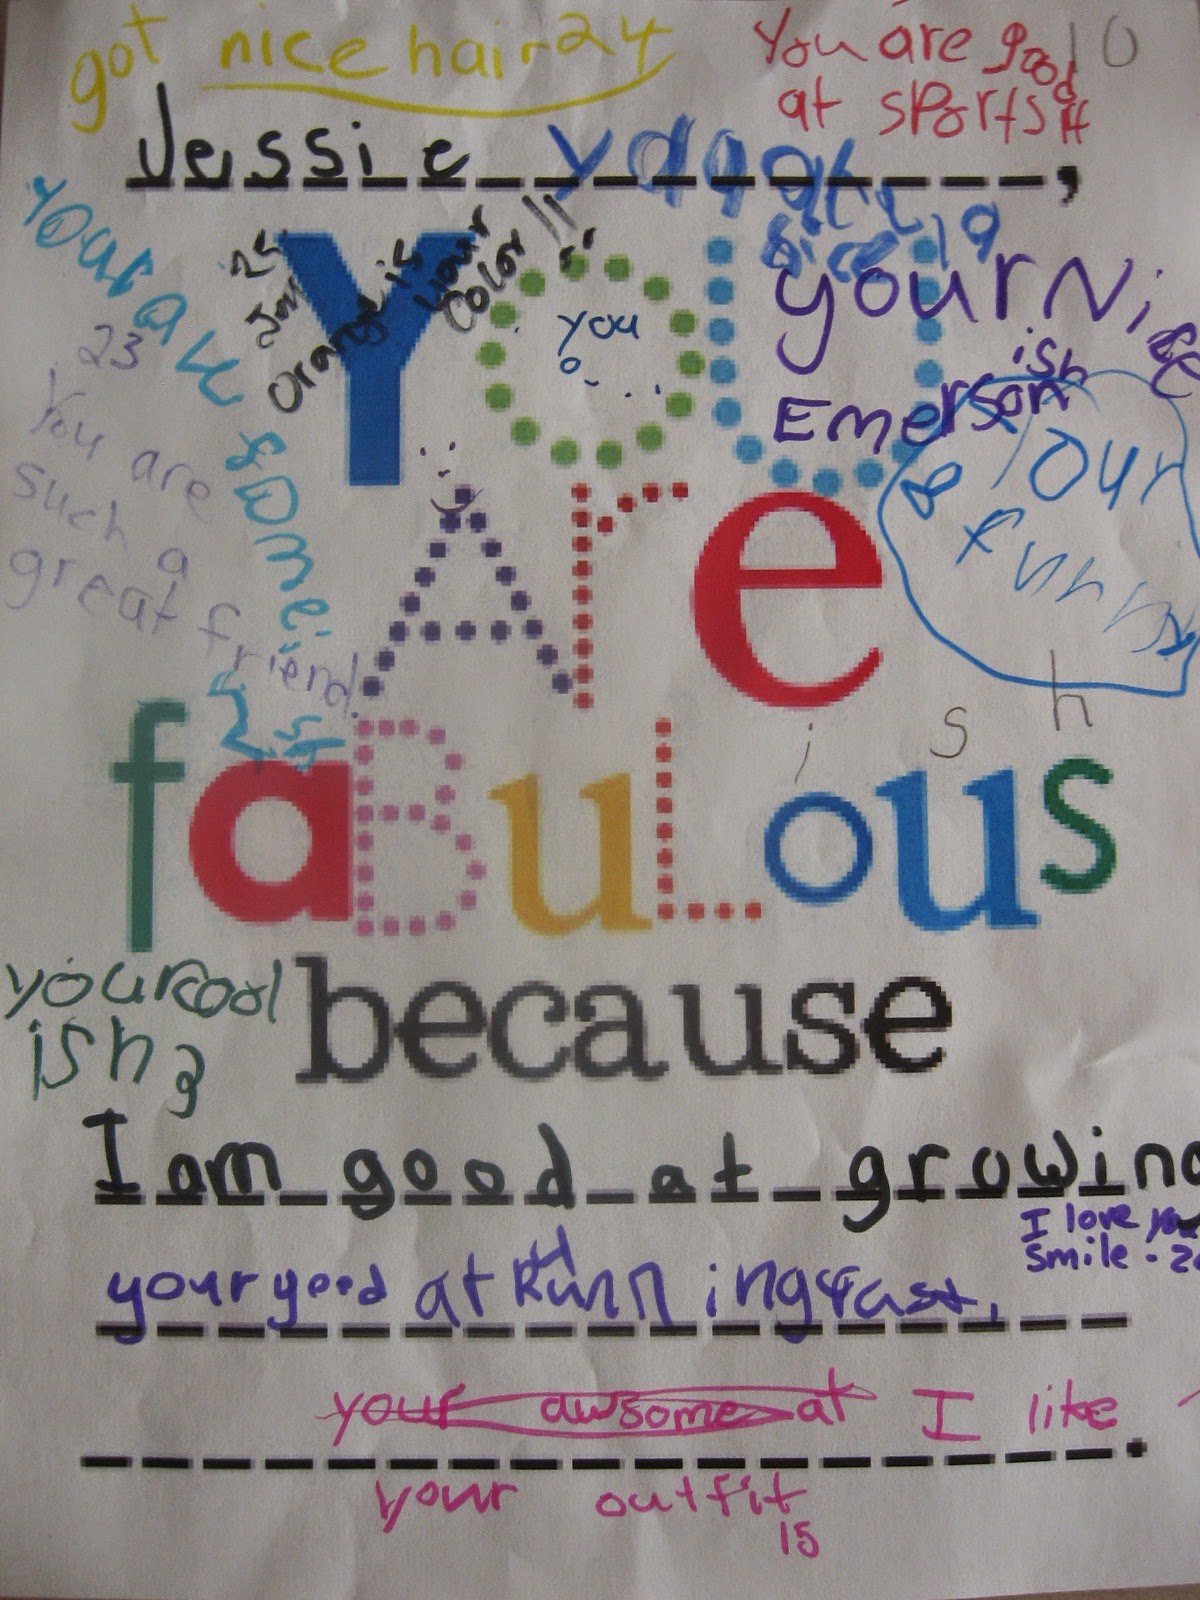 got nice hair 24
You are good
at sports
10
Jessie ,
YOU
25
Orange is
your
color!!
you
your Nice
ish
Emerson
8
your
funny
23
You are
such a
great friend.
Are
ish
faBuLous
your cool
ish 3
because
I am good at growing
I love you
smile - 20
your good at Running fast.
your awsome at I like
.
your outfit
15